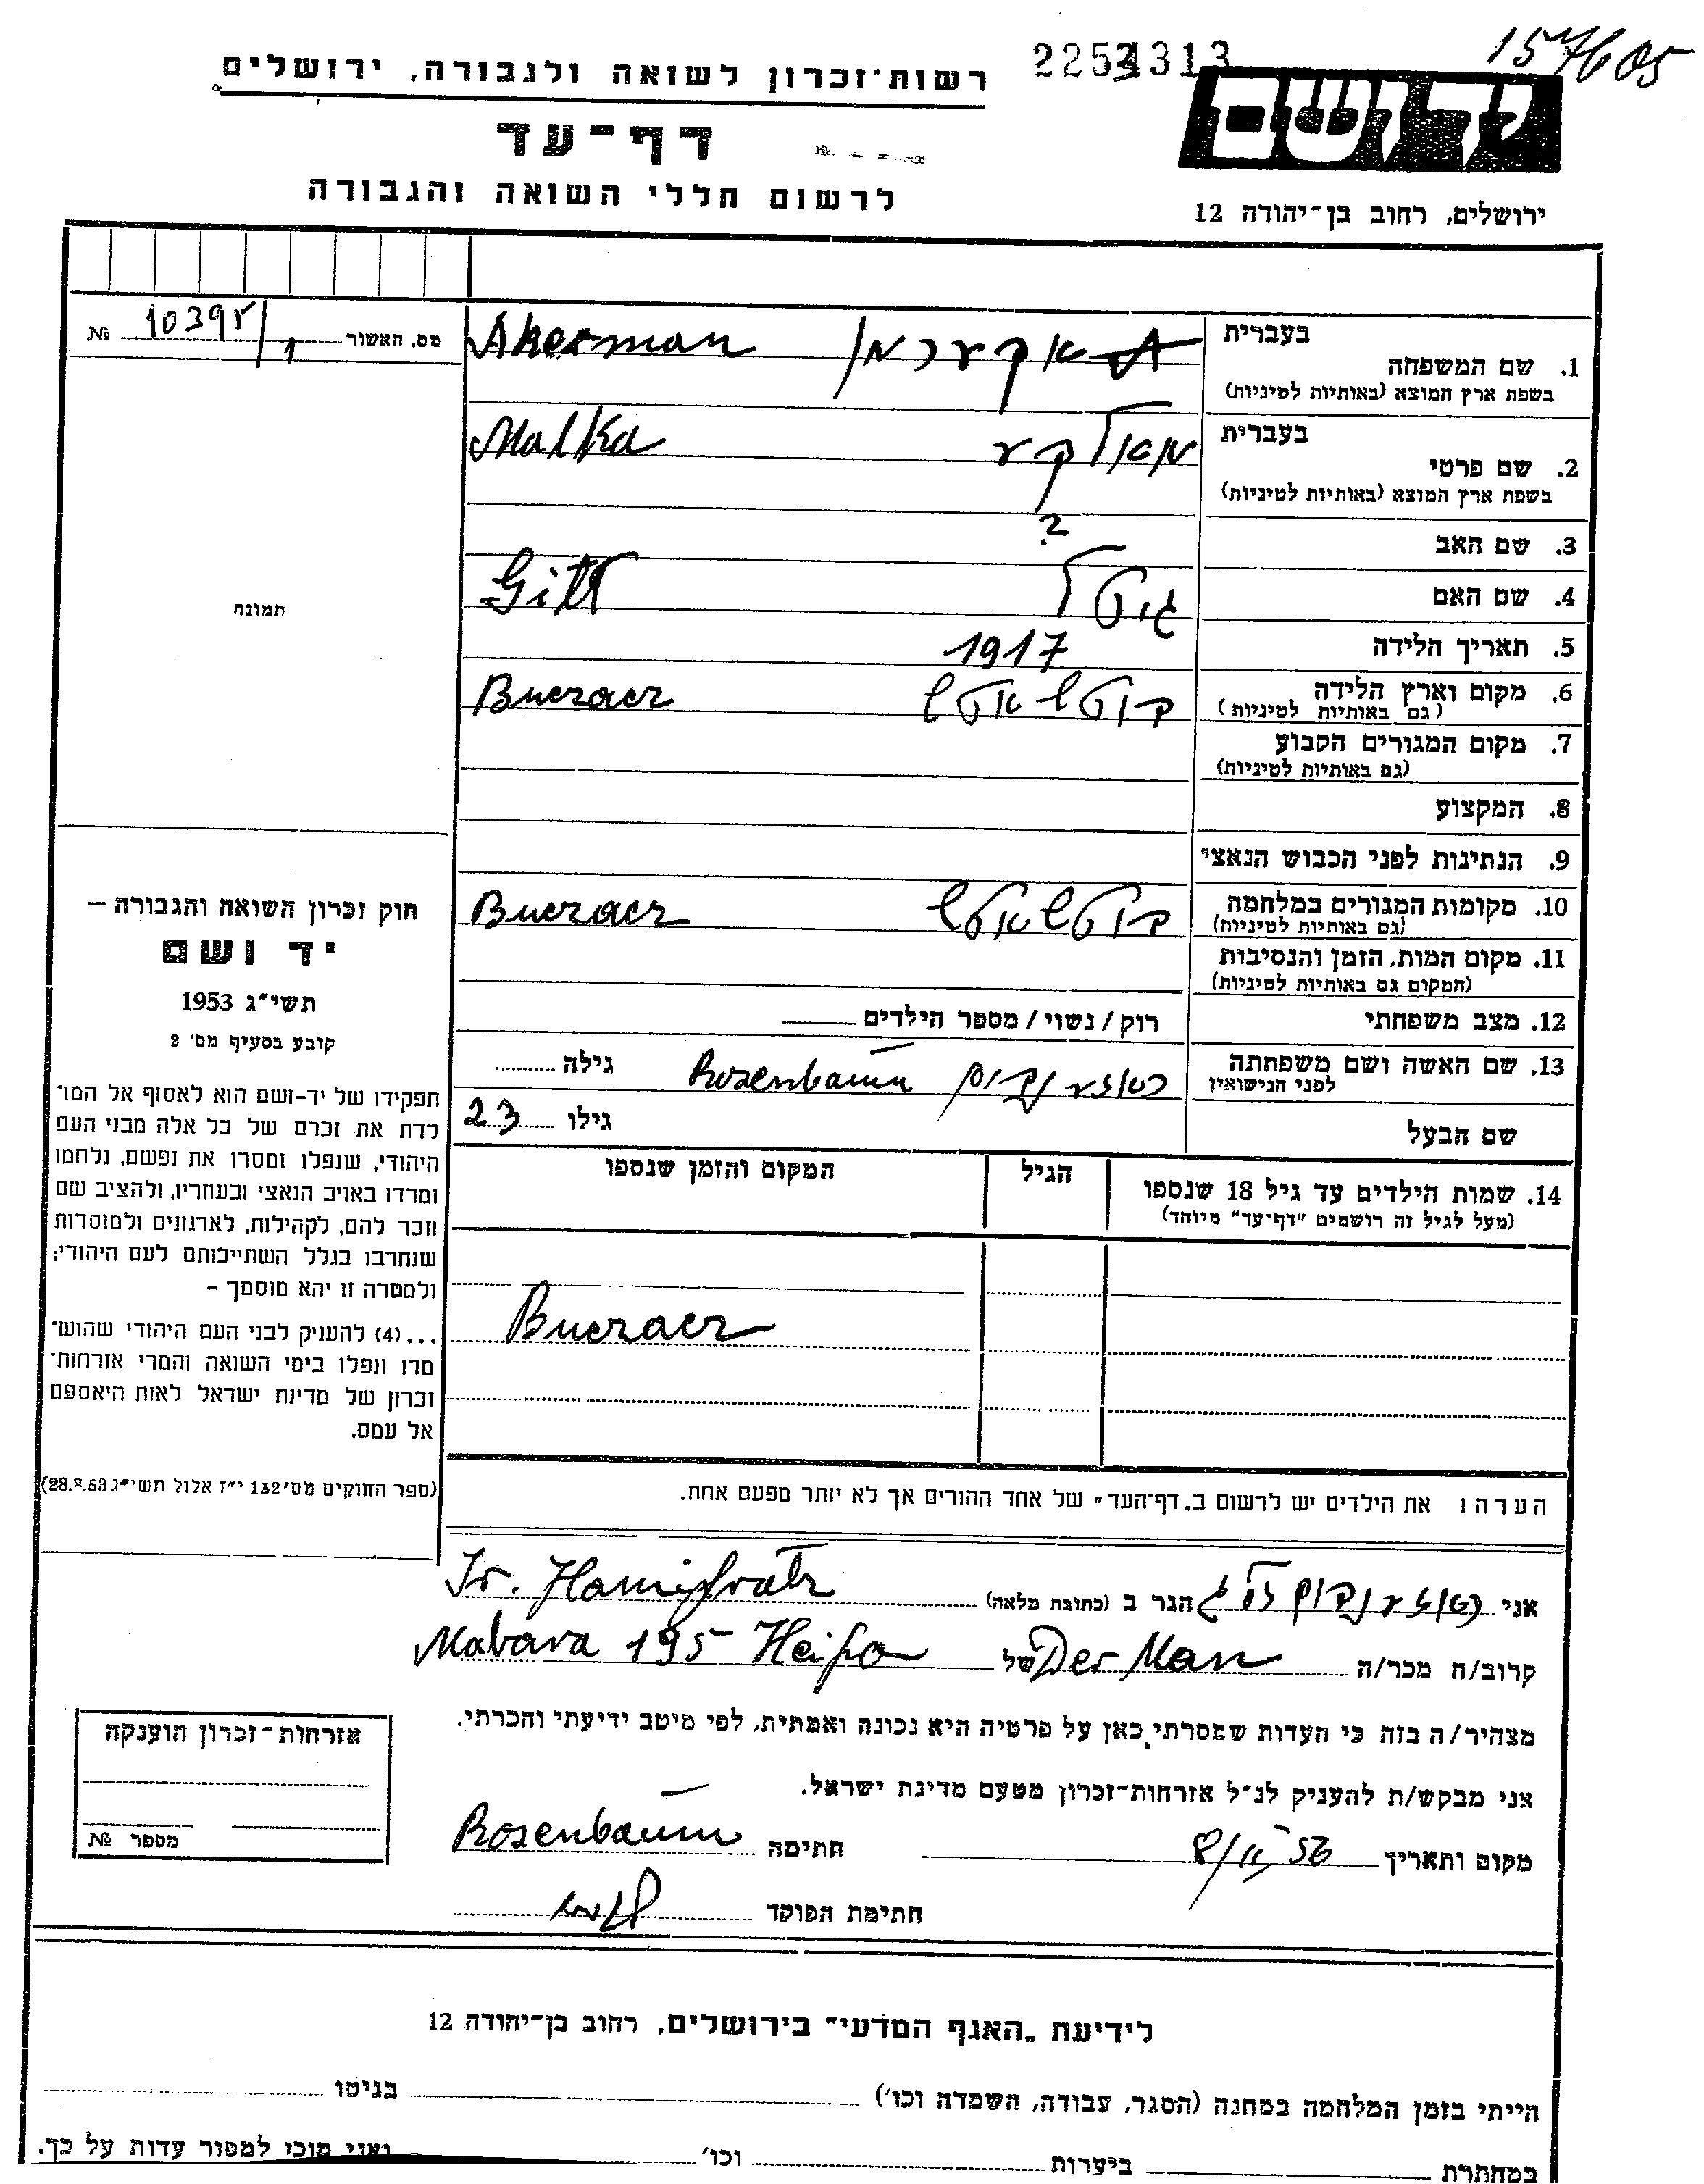 157605
2253313
רשות־זכרון לשואה ולגבורה, ירושלים
ידושם
דף־עד
לרשום חללי השואה והגבורה
ירושלים, רחוב בן־יהודה 12
מס. האשור 1/ № 10395
בעברית
1. שם המשפחה
בשפת ארץ המוצא (באותיות לטיניות)
אקערמן Akerman
בעברית
2. שם פרטי
בשפת ארץ המוצא (באותיות לטיניות)
מאלקע Malka
3. שם האב ?
4. שם האם גיטל Gitl
5. תאריך הלידה 1917
6. מקום וארץ הלידה
(גם באותיות לטיניות)
בוטשאטש Buczacz
7. מקום המגורים הקבוע
(גם באותיות לטיניות)
8. המקצוע
9. הנתינות לפני הכבוש הנאצי
10. מקומות המגורים במלחמה
(גם באותיות לטיניות)
בוטשאטש Buczacz
11. מקום המות, הזמן והנסיבות
(המקום גם באותיות לטיניות)
12. מצב משפחתי רוק / נשוי / מספר הילדים
13. שם האשה ושם משפחתה
לפני הנישואין
Rosenbaum גילה
שם הבעל גילו 23
14. שמות הילדים עד גיל 18 שנספו
(מעל לגיל זה רושמים "דף־עד" מיוחד)
הגיל
המקום והזמן שנספו
Buczacz
הערה: את הילדים יש לרשום ב„דף־העד" של אחד ההורים אך לא יותר מפעם אחת.
תמונה
חוק זכרון השואה והגבורה –
יד ושם
תשי"ג 1953
קובע בסעיף מס' 2
תפקידו של יד-ושם הוא לאסוף אל המו־
לדת את זכרם של כל אלה מבני העם
היהודי, שנפלו ומסרו את נפשם, נלחמו
ומרדו באויב הנאצי ובעוזריו, ולהציב שם
וזכר להם, לקהילות, לארגונים ולמוסדות
שנחרבו בגלל השתייכותם לעם היהודי;
ולמטרה זו יהא מוסמך –
...(4) להעניק לבני העם היהודי שהוש־
מדו ונפלו בימי השואה והמרי אזרחות־
זכרון של מדינת ישראל לאות היאספם
אל עמם.
(ספר החוקים מס' 132 י"ז אלול תשי"ג 28.8.53)
אני הגר ב (כתובת מלאה)
קרוב/ה מכר/ה Der Man של Mabara 195 Heifa
מצהיר/ה בזה כי העדות שמסרתי כאן על פרטיה היא נכונה ואמתית, לפי מיטב ידיעתי והכרתי.
אני מבקש/ת להעניק לנ"ל אזרחות־זכרון מטעם מדינת ישראל.
מקום ותאריך 8/11 56 חתימה Rosenbaum
חתימת הפוקד
אזרחות־זכרון הוענקה
מספר №
לידיעת „האגף המדעי" בירושלים, רחוב בן־יהודה 12
הייתי בזמן המלחמה במחנה (הסגר, עבודה, השמדה וכו') בגיטו
במחתרת ביערות וכו' ואני מוכן למסור עדות על כך.